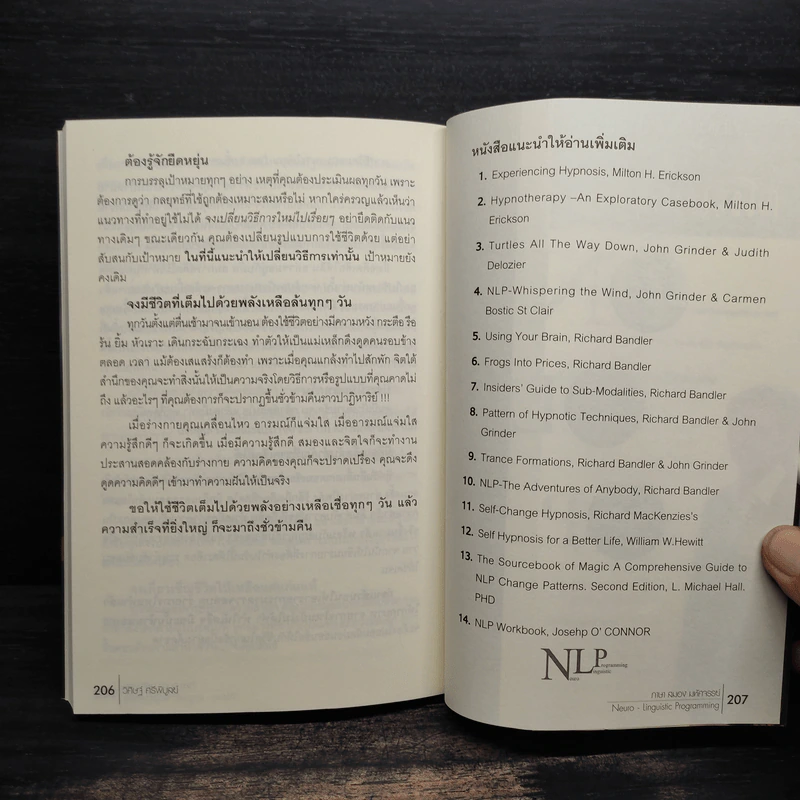 ต้องรู้จักยืดหยุ่น
การบรรลุเป้าหมายทุกๆ อย่าง เหตุที่คุณต้องประเมินผลทุกวัน เพราะ
ต้องการดูว่า กลยุทธ์ที่ใช้ถูกต้องเหมาะสมหรือไม่ หากใคร่ครวญแล้วเห็นว่า
แนวทางที่ทำอยู่ใช้ไม่ได้ จงเปลี่ยนวิธีการใหม่ไปเรื่อยๆ อย่ายึดติดกับแนว
ทางเดิมๆ ขณะเดียวกัน คุณต้องเปลี่ยนรูปแบบการใช้ชีวิตด้วย แต่อย่า
สับสนกับเป้าหมาย ในที่นี้แนะนำให้เปลี่ยนวิธีการเท่านั้น เป้าหมายยัง
คงเดิม
จงมีชีวิตที่เต็มไปด้วยพลังเหลือล้นทุกๆ วัน
ทุกวันตั้งแต่ตื่นเช้ามาจนเข้านอน ต้องใช้ชีวิตอย่างมีความหวัง กระตือ รือ
ร้น ยิ้ม หัวเราะ เดินกระฉับกระเฉง ทำตัวให้เป็นแม่เหล็กดึงดูดคนรอบข้าง
ตลอด เวลา แม้ต้องเสแสร้งก็ต้องทำ เพราะเมื่อคุณแกล้งทำไปสักพัก จิตใต้
สำนึกของคุณจะทำสิ่งนั้นให้เป็นความจริงโดยวิธีการหรือรูปแบบที่คุณคาดไม่
ถึง แล้วอะไรๆ ที่คุณต้องการก็จะปรากฏขึ้นชั่วข้ามคืนราวปาฏิหาริย์ !!!
เมื่อร่างกายคุณเคลื่อนไหว อารมณ์ก็แจ่มใส เมื่ออารมณ์แจ่มใส
ความรู้สึกดีๆ ก็จะเกิดขึ้น เมื่อมีความรู้สึกดี สมองและจิตใจก็จะทำงาน
ประสานสอดคล้องกับร่างกาย ความคิดของคุณก็จะปราดเปรื่อง คุณจะดึง
ดูดความคิดดีๆ เข้ามาทำความฝันให้เป็นจริง
ขอให้ใช้ชีวิตเต็มไปด้วยพลังอย่างเหลือเชื่อทุกๆ วัน แล้ว
ความสำเร็จที่ยิ่งใหญ่ ก็จะมาถึงชั่วข้ามคืน
206 วิศิษฐ์ ศรีพิบูลย์
หนังสือแนะนำให้อ่านเพิ่มเติม
1. Experiencing Hypnosis, Milton H. Erickson
2. Hypnotherapy –An Exploratory Casebook, Milton H.
Erickson
3. Turtles All The Way Down, John Grinder & Judith
Delozier
4. NLP-Whispering the Wind, John Grinder & Carmen
Bostic St Clair
5. Using Your Brain, Richard Bandler
6. Frogs Into Prices, Richard Bandler
7. Insiders' Guide to Sub-Modalities, Richard Bandler
8. Pattern of Hypnotic Techniques, Richard Bandler & John
Grinder
9. Trance Formations, Richard Bandler & John Grinder
10. NLP-The Adventures of Anybody, Richard Bandler
11. Self-Change Hypnosis, Richard MacKenzies's
12. Self Hypnosis for a Better Life, William W.Hewitt
13. The Sourcebook of Magic A Comprehensive Guide to
NLP Change Patterns. Second Edition, L. Michael Hall.
PHD
14. NLP Workbook, Josehp O' CONNOR
Neuro Linguistic Programming
ภาษา สมอง มหัศจรรย์
Neuro - Linguistic Programming 207